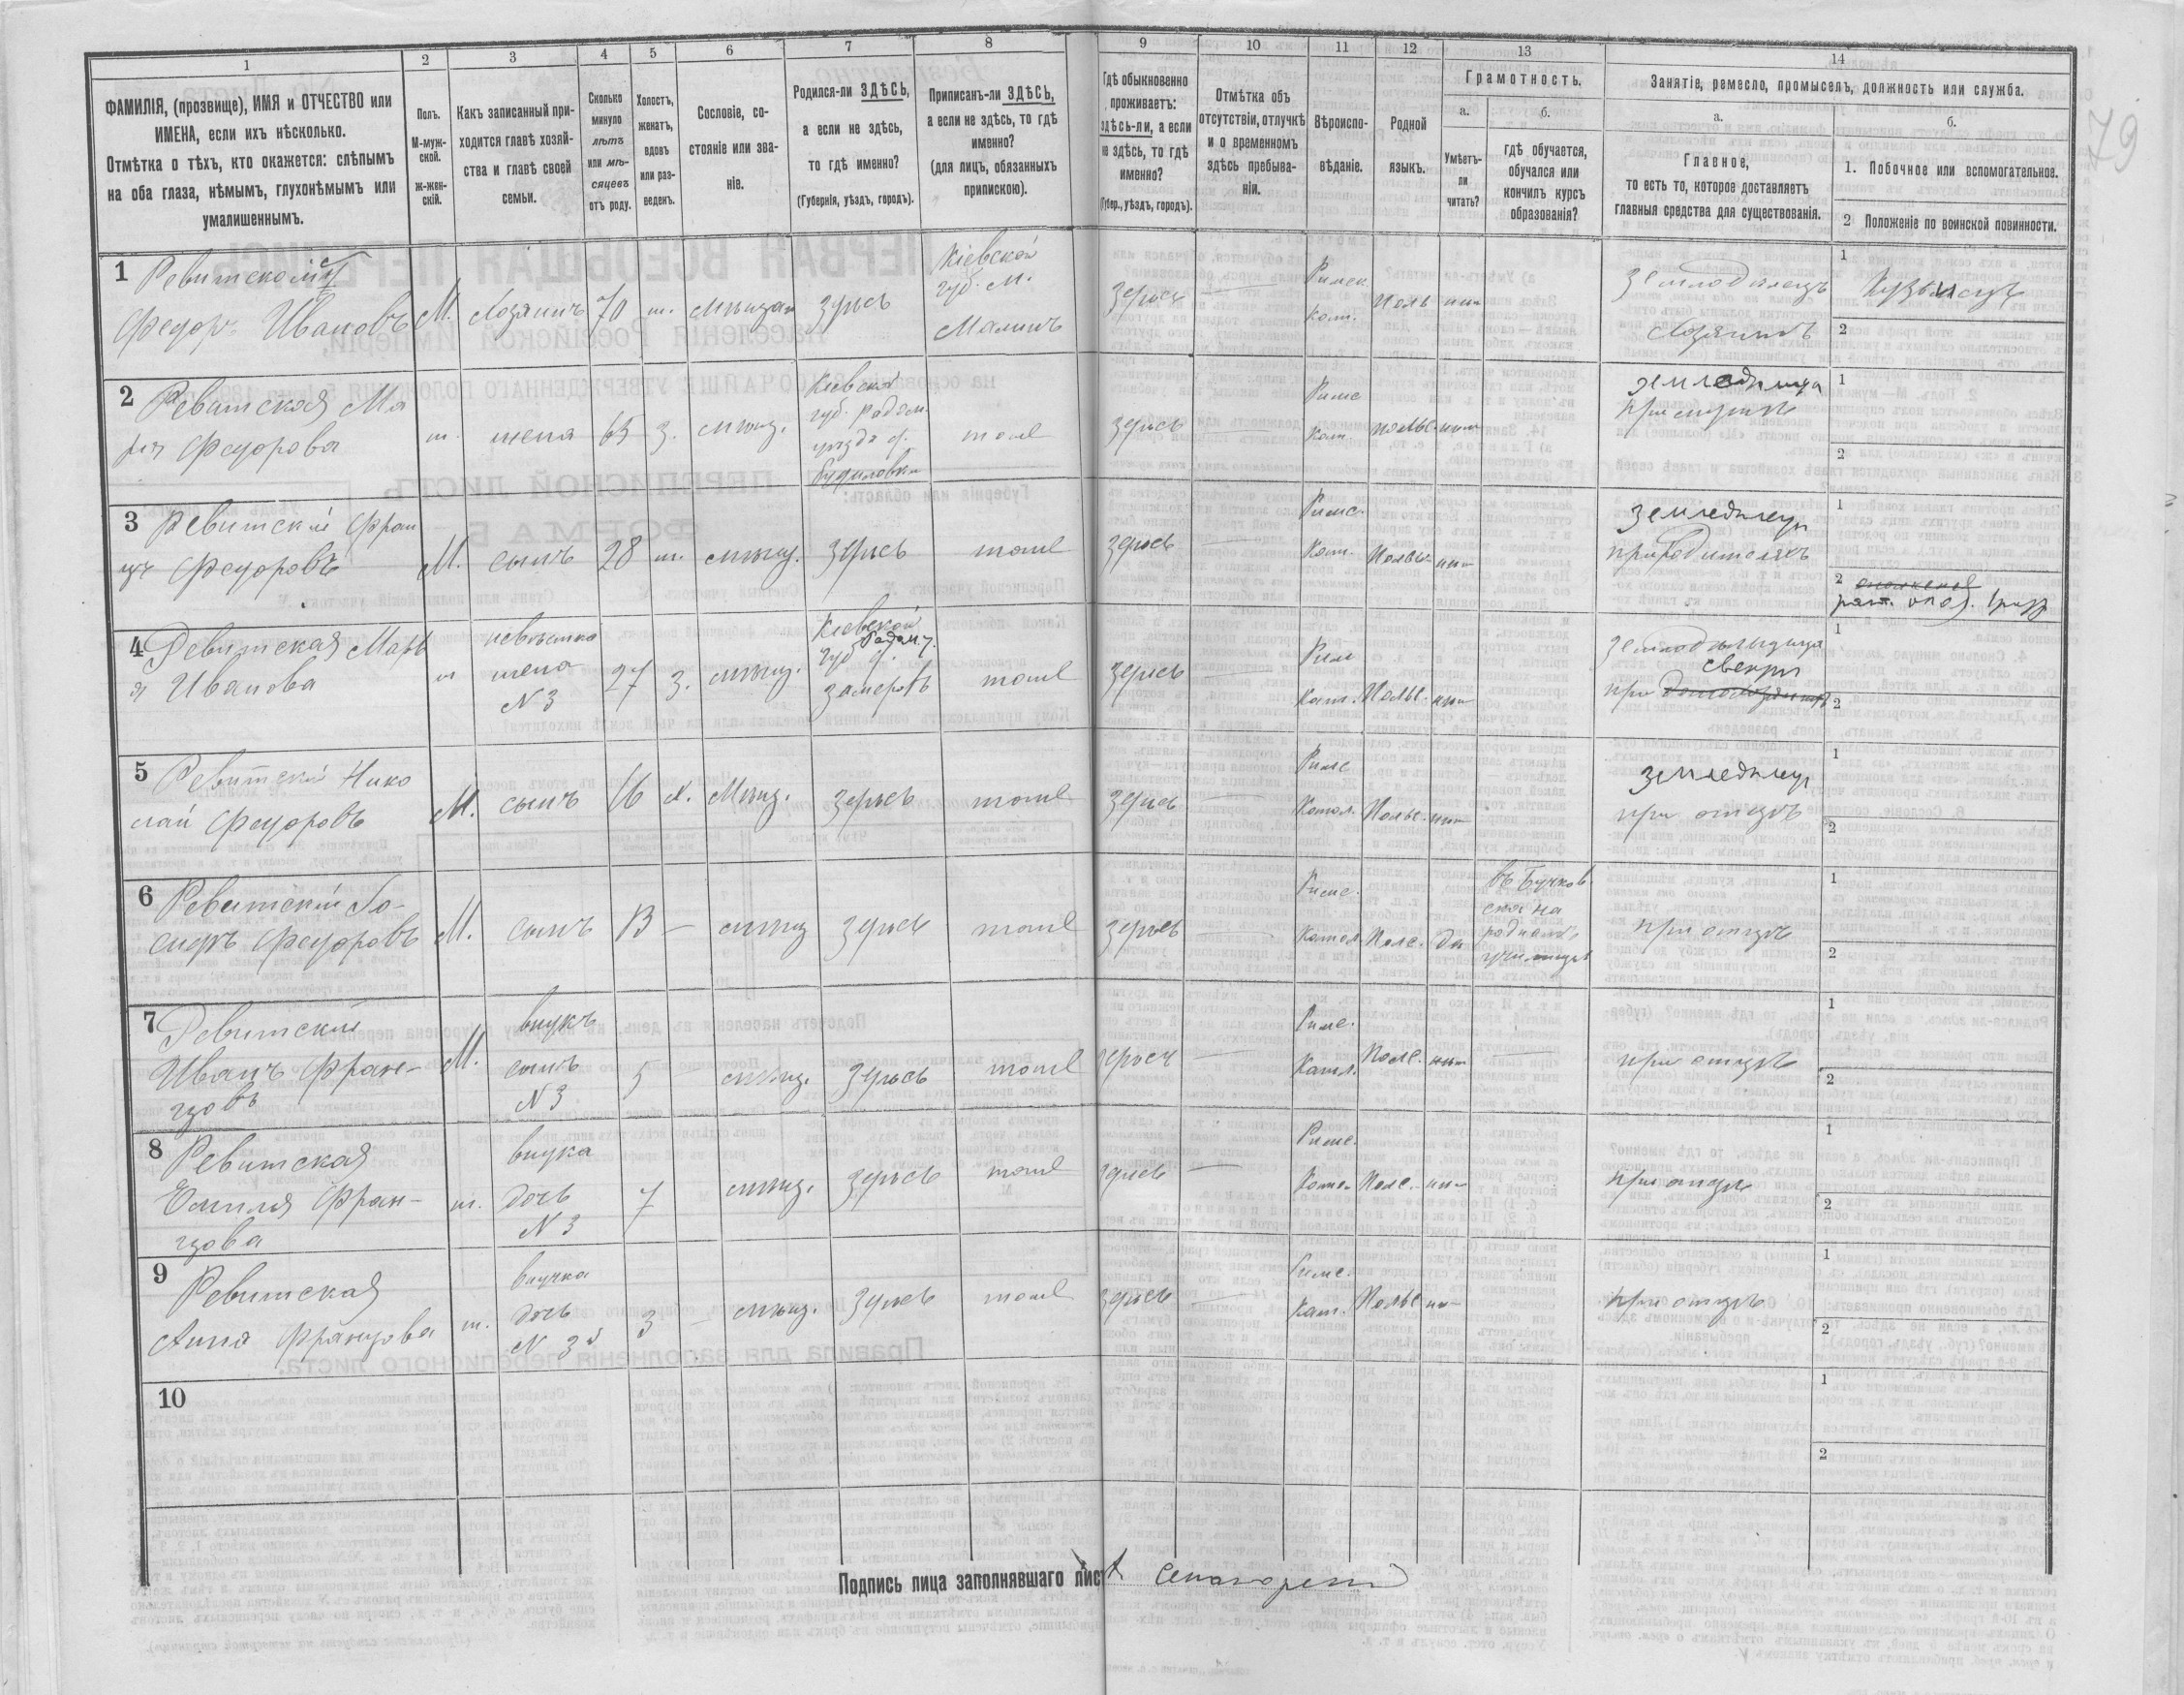 1 2 3 4 5 6 7 8 9 10 11 12 13 14
ФАМИЛІЯ, (прозвище), ИМЯ и ОТЧЕСТВО или
ИМЕНА, если ихъ нѣсколько.
Отмѣтка о тѣхъ, кто окажется: слѣпымъ
на оба глаза, нѣмымъ, глухонѣмымъ или
умалишеннымъ.
Полъ.
М-муж-
ской.
Ж-жен-
скій.
Какъ записанный при-
ходится главѣ хозяй-
ства и главѣ своей
семьи.
Сколько
минуло
лѣтъ
или мѣ-
сяцевъ
отъ роду.
Холостъ,
женатъ,
вдовъ
или раз-
веденъ.
Сословіе, со-
стояніе или зва-
ніе.
Родился-ли ЗДѢСЬ,
а если не здѣсь,
то гдѣ именно?
(Губернія, уѣздъ, городъ).
Приписанъ-ли ЗДѢСЬ,
а если не здѣсь, то гдѣ
именно?
(для лицъ, обязанныхъ
припискою).
Гдѣ обыкновенно
проживаетъ:
здѣсь-ли, а если
не здѣсь, то гдѣ
именно?
(Губер., уѣздъ, городъ).
Отмѣтка объ
отсутствіи, отлучкѣ
и о временномъ
здѣсь пребыва-
ніи.
Вѣроиспо-
вѣданіе.
Родной
языкъ.
Грамотность.
а.
Умѣетъ-
ли
читать?
б.
гдѣ обучается,
обучался или
кончилъ курсъ
образованія?
Занятіе, ремесло, промыселъ, должность или служба.
а.
Главное,
то есть то, которое доставляетъ
главныя средства для существованія.
б.
1. Побочное или вспомогательное.
2 Положеніе по воинской повинности.
79
1
Федоръ Ивановъ
М. Хозяинъ 70 ж. мѣщан здѣсь
Кіевской
губ. м.
Малинъ
здѣсь
Римск
кат.
Поль
нѣт
Земледѣлецъ
Хозяинъ
1 Кузнецъ
2
2 Ревитская Ма
рія Федорова
ж. жена 65 з. мѣщ.
Кіевской
губ. Радом.
уѣзда с.
тоже
здѣсь
Римс
Кат.
Польс. нѣт
при мужѣ
1
2
3 Ревитскій Фран
цъ Федоровъ
М. сынъ 28 ж. мѣщ. здѣсь тоже
здѣсь
Римс.
Кат.
Польс. нѣт
Земледѣлец
при родителяхъ
1
2
4 Ревитская Мары
я Иванова
ж
невѣстка
жена
N 3
27 з. мѣщ.
Кіевской
губ. Радом. у.
с.
тоже
здѣсь
Рим
Катл. Польс. нѣт
Земледѣлица
при свекрѣ
1
2
5 Ревитскій Нико
лай Федоровъ
М. сынъ 16 х. Мѣщ. здѣсь тоже
здѣсь
Римс
Катол. Польс. нѣт
Земледѣлец
при отцѣ
1
2
6 Ревитскій Іо-
сифъ Федоровъ
М. сынъ 13 — мѣщ здѣсь тоже
здѣсь
Римс.
Катол. Полс. да
въ Бучков
ском на
родномъ
училищѣ
при отцѣ
1
2
7 Ревитскій
Иванъ Фран-
цовъ
М.
внукъ
сынъ
N 3
5 мѣщ. здѣсь тоже
здѣсь
Римс.
Катл. Полс. нѣт
при отцѣ
1
2
8 Ревитская
Емилія Фран-
цова
ж.
внука
дочь
N 3
7 мѣщ. здѣсь тоже
здѣсь
Римс.
Катол Полс. нѣт
при отцѣ
1
2
9 Ревитская
Анна Францова
ж.
внучка
дочь
N 3
3 — мѣщ. здѣсь тоже
здѣсь
Римс.
Кат. Польс нѣт
при отцѣ
1
2
10
1
2
Подпись лица заполнявшаго листъ